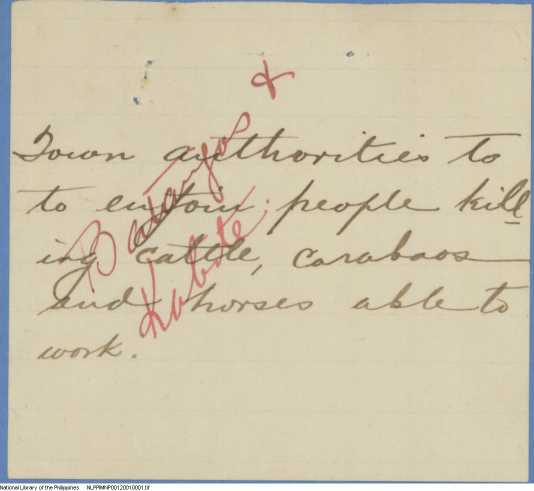 Town authorities to
to enjoin people kill-
ing cattle, carabaos
and horses able to
work.
Batangas
Kabite
National Library of the Philippines NLPPIMNP00120010001.tif